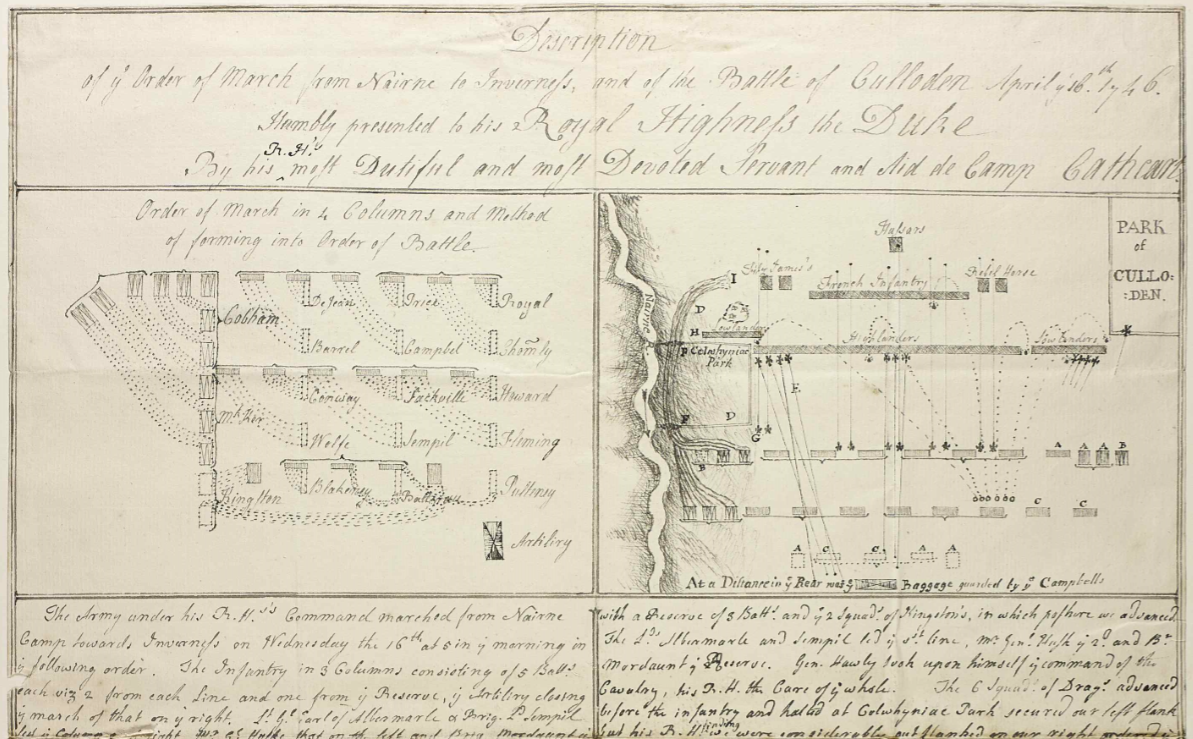 Description
of yͤ Order of March from Nairne to Inverness, and of the Battle of Culloden April yͤ 16.th 1746.
Humbly presented to his Royal Highness the Duke
R.H.s
By his most Dutiful and most Devoted Servant and Aid de Camp Cathcart
Order of March in 4 Columns and Method
of forming into Order of Battle.
Cobham
DeJean
Price
Royal
Barrel
Campbel
Conway
Sackville
Howard
Mk Ker
Wolfe
Sempil
Fleming
Kingston
Blakeney
Battereau
Pulteney
Artiliry
PARK
of
CULLO:
:DEN.
Husars
French Infantry
Rebel Horse
I
Nairne
D
H
Lowlanders
Highlanders
Low landers
Park
E
F
D
G
B
A
A
A
B
C
C
A
C
C
A
A
At a Distance in yͤ Rear was yͤ Baggage guarded by yͤ Campbells
The Army under his R.H.s's Command marched from Nairne
Camp towards Inverness on Wednesday the 16th at 5 in yͤ morning in
yͤ following order. The Infantry in 3 Columns consisting of 5 Batts.
each viz 2 from each Line and one from yͤ Reserve, yͤ Artilery closing
yͤ march of that on yͤ right. Lt. G. Earl of Albermarle & Brig. Ld. Sempil
with a Reserve of 3 Batts. and yͤ 2 Squads. of Kingston's, in which posture we advanced
The Lds Albermarle and Sempil led yͤ 1st line, Mr. Genl. Husk yͤ 2d. and Br.
Mordaunt yͤ Reserve. Gen. Hawly took upon himself yͤ command of the
Cavalry, his R.H. the Care of yͤ whole. The 6 Squads. of Drags. advanced
before the infantry and halted at Colwhyniac Park secured our left flank
but his R.H. finding we were considerably outflanked on our right